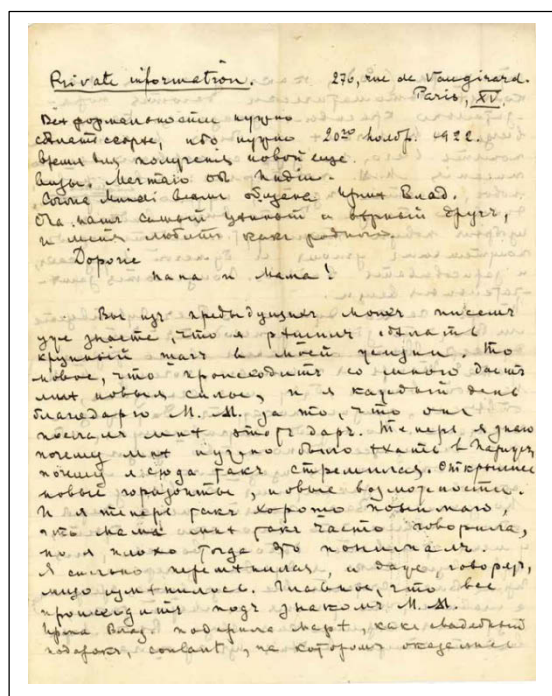 Private information.
276, rue de Vaugirard.
Paris, XV.
Все формальности нужно
сделать скорѣе, ибо нужно
20го Ноябр. 1922.
время для полученія новой еще
визы. Мечтаю об Индіи.
вами общена Ирина Влад.
Она наш самый цѣнный и вѣрный другъ,
и меня любитъ какъ родного.
Дорогіе
папа и мама!
Вы изъ предыдущихъ моихъ писемъ
уже знаете, что я рѣшилъ сдѣлать
крупный шагъ в моей жизни. То
новое, что происходитъ со мною даетъ
мнѣ новыя силы, и я каждый день
благодарю М. М. за то, что они
послали мнѣ этотъ даръ. Теперь я знаю
почему мнѣ нужно было ѣхать в Парижъ,
почему я сюда такъ стремился. Открылись
новые горизонты, новые возможности.
И я теперь такъ хорошо понимаю,
что мама мнѣ такъ часто говорила,
но я плохо тогда это понималъ.
Я сильно перемѣнился, и даже, говорятъ,
лицо измѣнилось. Главное, что все
происходитъ подъ знакомъ М. М.
Ирина Влад. подарила какъ свадебный
подарокъ, coulant, на которомъ оказались